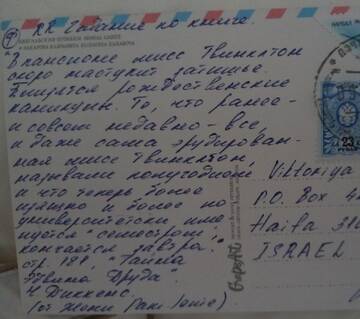 RR Гадание по книге.
"В пансионе мисс Твинклтон
скоро наступит затишье.
Близятся рождественские
каникулы. То, что ранее -
и совсем недавно - все,
и даже сама эрудирован-
ная мисс Твинклтон,
называли полугодием
и что теперь более
изящно и более по
университетски име-
нуется "семестром",
кончается завтра."
стр. 188, "Тайна
Эдвина Друда"
Ч. Диккенс.
(от Жени
23
Viktoriya
P.O. Box
Haifa
ISRAEL